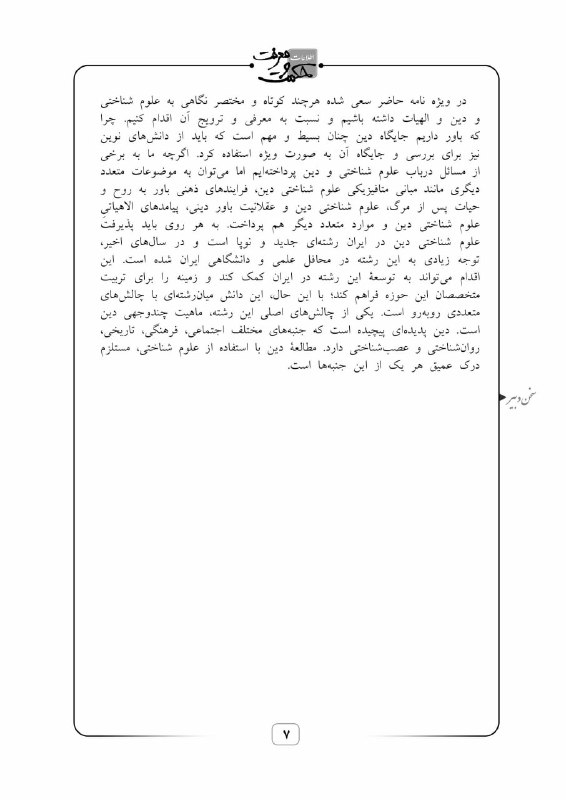 اطلاعات
حکمت و معرفت
در ویژه نامه حاضر سعی شده هرچند کوتاه و مختصر نگاهی به علوم شناختی
و دین و الهیات داشته باشیم و نسبت به معرفی و ترویج آن اقدام کنیم. چرا
که باور داریم جایگاه دین چنان بسیط و مهم است که باید از دانش‌های نوین
نیز برای بررسی و جایگاه آن به صورت ویژه استفاده کرد. اگرچه ما به برخی
از مسائل درباب علوم شناختی و دین پرداخته‌ایم اما می‌توان به موضوعات متعدد
دیگری مانند مبانی متافیزیکی علوم شناختی دین، فرایندهای ذهنی باور به روح و
حیات پس از مرگ، علوم شناختی دین و عقلانیت باور دینی، پیامدهای الاهیاتیِ
علوم شناختی دین و موارد متعدد دیگر هم پرداخت. به هر روی باید پذیرفت
علوم شناختی دین در ایران رشته‌ای جدید و نوپا است و در سال‌های اخیر،
توجه زیادی به این رشته در محافل علمی و دانشگاهی ایران شده است. این
اقدام می‌تواند به توسعهٔ این رشته در ایران کمک کند و زمینه را برای تربیت
متخصصان این حوزه فراهم کند؛ با این حال، این دانش میان‌رشته‌ای با چالش‌های
متعددی روبه‌رو است. یکی از چالش‌های اصلی این رشته، ماهیت چندوجهی دین
است. دین پدیده‌ای پیچیده است که جنبه‌های مختلف اجتماعی، فرهنگی، تاریخی،
روان‌شناختی و عصب‌شناختی دارد. مطالعهٔ دین با استفاده از علوم شناختی، مستلزم
درک عمیق هر یک از این جنبه‌ها است.
سخن دبیر
۷